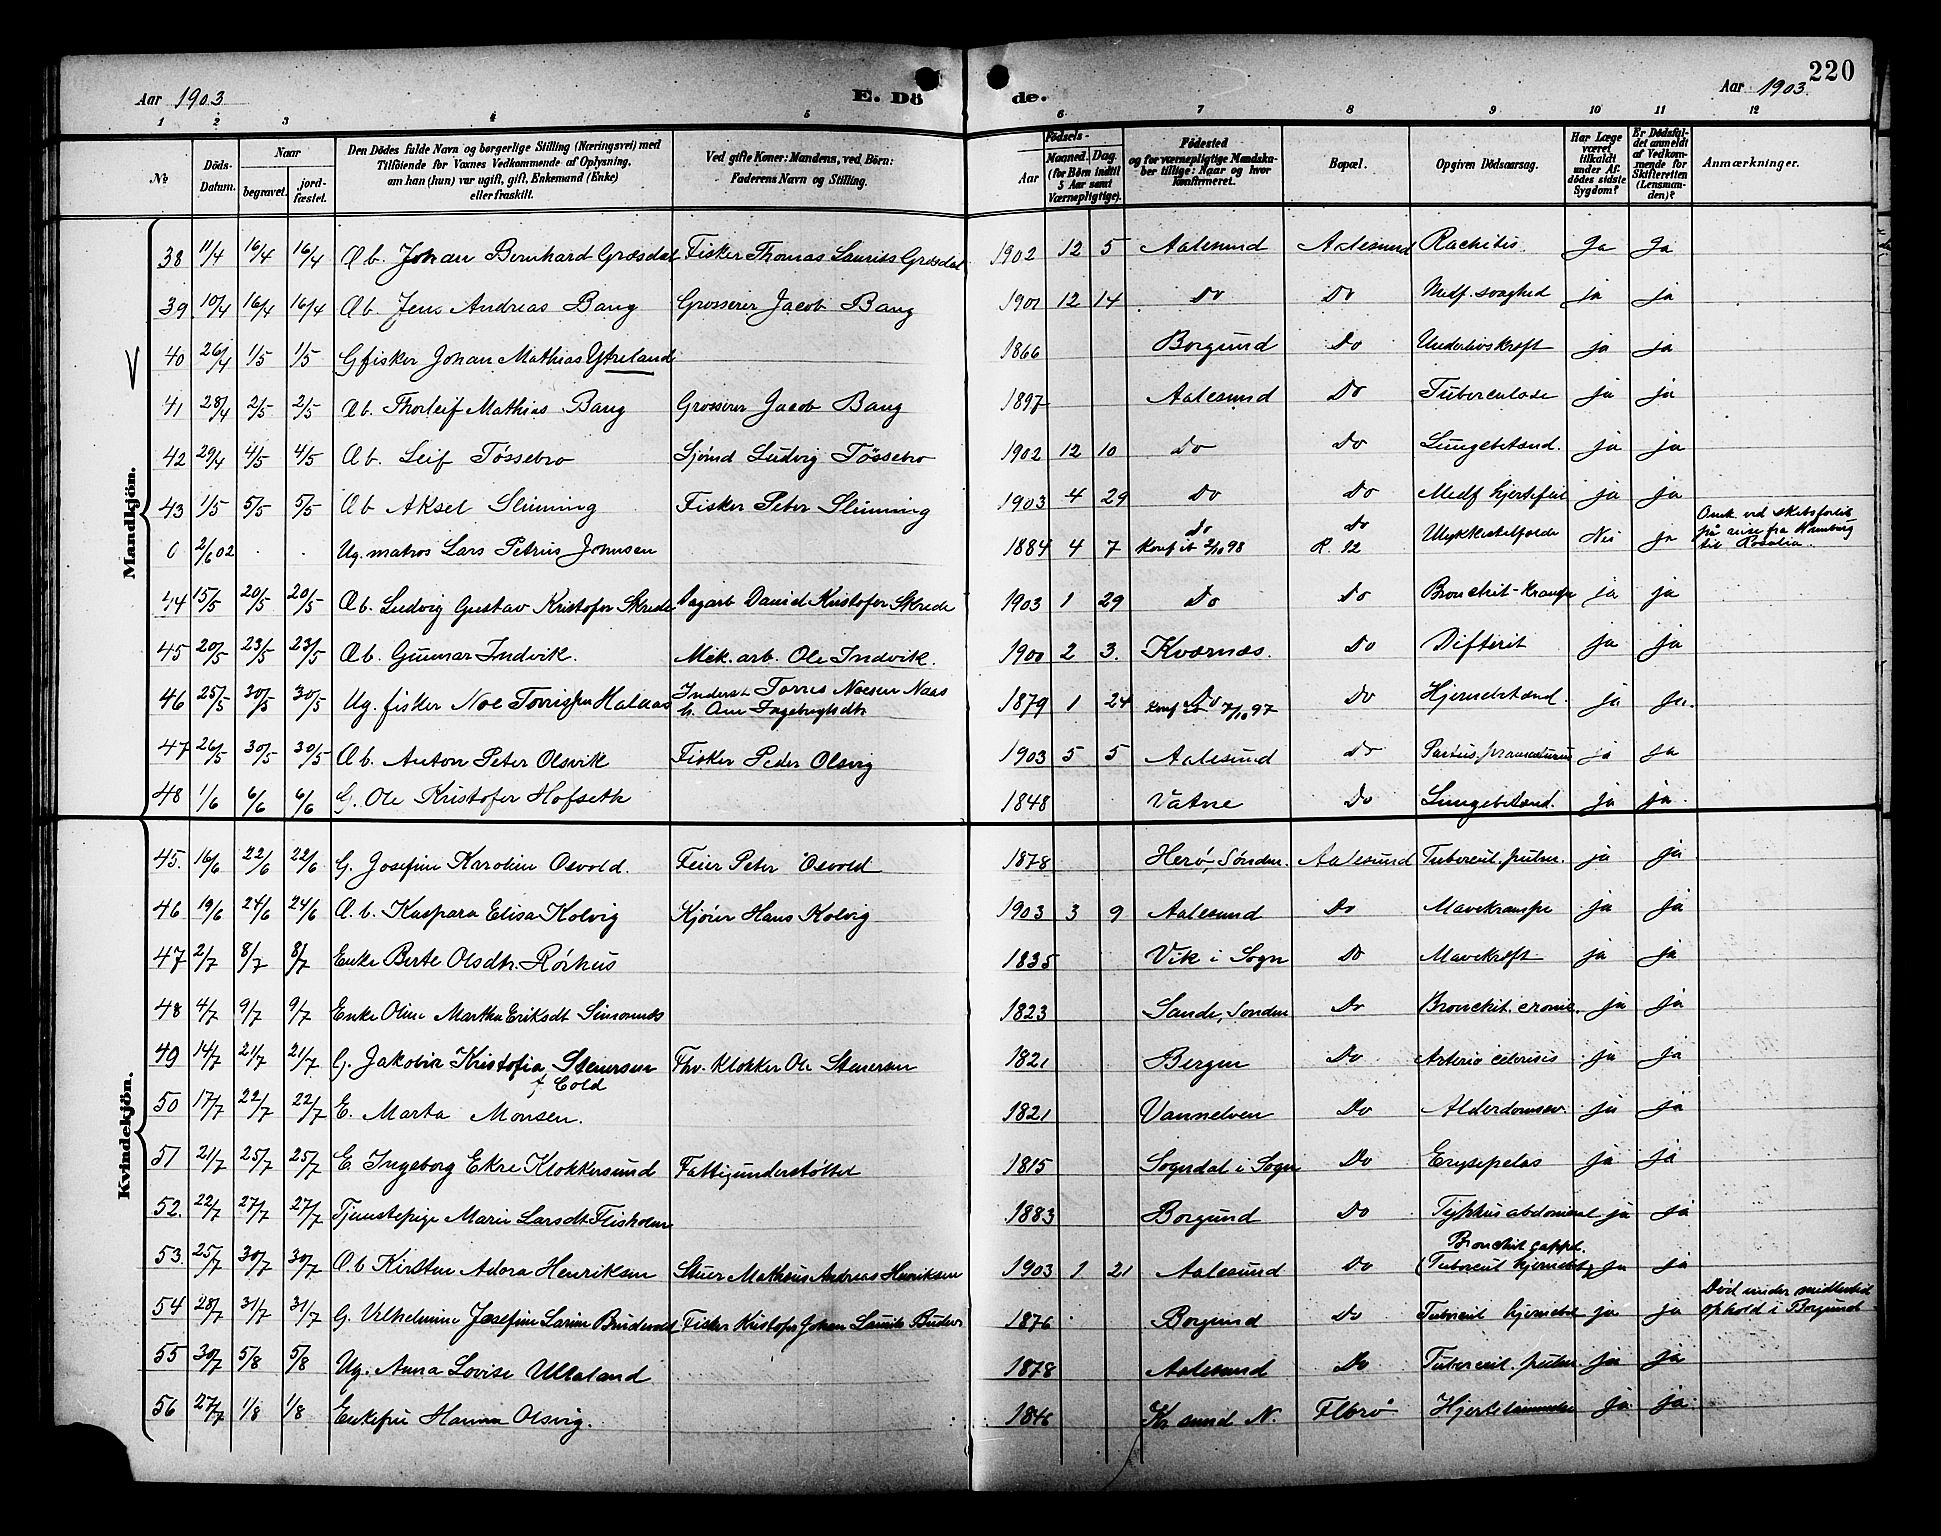 220
Aar 1903 E. Dö de. Aar 1903.
1 2 3 4 5 6 7 8 9 10 11 12
№ Döds-Datum. Naar begravet. jord-fæstet. Den Dödes fulde Navn og borgerlige Stilling (Næringsvei) med Tilföiende for Voxnes Vedkommende af Oplysning, om han (hun) var ugift, gift, Enkemand (Enke) eller fraskilt. Ved gifte Koner: Mandens, ved Börn: Faderens Navn og Stilling. Födsels- Aar Maaned. Dag. (for Börn indtil 5 Aar samt Værnepligtige). Födested og for værnepligtige Mandskaber tillige: Naar og hvor Konfirmeret. Bopæl. Opgiven Dödsaarsag. Har Læge været tilkaldt under Afdödes sidste Sygdom? Er Dödsfaldet anmeldt af Vedkommende for Skifteretten (Lensmanden)? Anmærkninger.
Mandkjön.
38 11/4 16/4 16/4 Æb. Johan Bernhard Græsdal Fisker Thomas Laurits Græsdal 1902 12 5 Aalesund Aalesund Rachitis. Ja Ja
39 10/4 16/4 16/4 Æb. Jens Andreas Bang Grosserer Jacob Bang 1901 12 14 Do Do Medf. svaghed ja ja
40 26/4 1/5 1/5 G fisker Johan Mathias Ytreland 1866 Borgund Do Underlivskræft ja ja
41 28/4 2/5 2/5 Æb. Thorleif Mathias Bang Grosserer Jacob Bang 1897 Aalesund Do Tuberculose ja ja
42 29/4 4/5 4/5 Æb. Leif Tössebro Sjömd Ludvig Tössebro 1902 12 10 Do Do Lungebetænd. ja ja
43 1/5 5/5 5/5 Æb Aksel Slinning Fisker Peter Slinning 1903 4 29 Do Do Medf hjertefeil ja ja
0 2/6 02 . . Ug. matros Lars Petrus Johnsen 1884 4 7 Do Konf it 2/10 98 Do R. 12 Ulykkestilfælde Nei ja Omk. ved skibsforlis på reise fra til Rosalia.
44 15/5 20/5 20/5 Æb. Ludvig Gustav Kristofer Skrede Dagarb David Kristofer Skrede 1903 1 29 Do Do Bronchit-Krampe ja ja
45 20/5 23/5 23/5 Æb. Gunnar Indvik. Mek. arb. Ole Indvik. 1900 2 3. Kværnæs. Do Difterit ja ja
46 25/5 30/5 30/5 Ug. fisker Noe Halaas Inderst Torris Noesen Naas h. Ane Ingebrigtsdtr 1879 1 24 Do Konf 7/10 97 Do Hjernebetænd ja ja.
47 26/5 30/5 30/5 Æb. Anton Peter Olsvik Fisker Peder Olsvig 1903 5 5 Aalesund Do Partus præmaturus ja ja
48 1/6 6/6 6/6 G. Ole Kristofer Hofseth 1848 Vatne Do Lungebetænd. ja ja.
Kvindekjön.
45. 16/6 22/6 22/6 G. Josefine Karoline Osvold. Feier Peter Osvold 1878 Herö, Sönden. Aalesund Tubercul. pulm. ja ja
46 19/6 24/6 24/6 Æ. b. Kaspara Elisa Kolvig Kjörer Hans Kolvig 1903 3 9 Aalesund Do Mavekrampe ja ja
47 2/7 8/7 8/7 Enke Berte Olsdtr. Rörhus 1835 Vik i Sogn Do Mavekræft ja ja
48 4/7 9/7 9/7 Enke Oline Martha Eriksdt Simonnæs 1823 Sande, Sönden Do Bronchit. cronic. ja ja
49 14/7 21/7 21/7 G. Jakobine Kristofia Stenersen f Cold Fhv. Klokker Ole Stenersen 1821 Bergen Do Arterio sclerosis ja ja
50 17/7 22/7 22/7 E. Marta Monsen. 1821 Vannelven Do Alderdomssv. ja ja
51 21/7 25/7 25/7 E Ingeborg Ekre Klokkersund Fattigunderstöttet 1815 Sogndal i Sogn Do Erysipelas ja ja
52. 22/7 27/7 27/7 Tjenestepige Marie Larsdt Flisholm 1883 Borgund Do Typhus abdominal ja ja
53. 25/7 30/7 30/7 Æ.b Kirsten Adora Henriksen Stuer Mathæus Andreas Henriksen 1903 1 21 Aalesund Do Bronchit cappil. (Tubercul hjernebet) ja ja
54 28/7 31/7 31/7 G. Vilhelmine Josefine Larine Brudevold Fisker Kristofer Johan 1876 Borgund Do Tubercul hjernebet ja ja Död under midlertid ophold i Borgund
55 30/7 5/8 5/8 Ug. Anna Lovise Ullaland 1878 Aalesund Do Tubercul. pulm ja ja
56 27/7 1/8 1/8 Enkefru Hanna Olsvig. 1846 Kr sund N. Florö Hjertelammelse ja ja